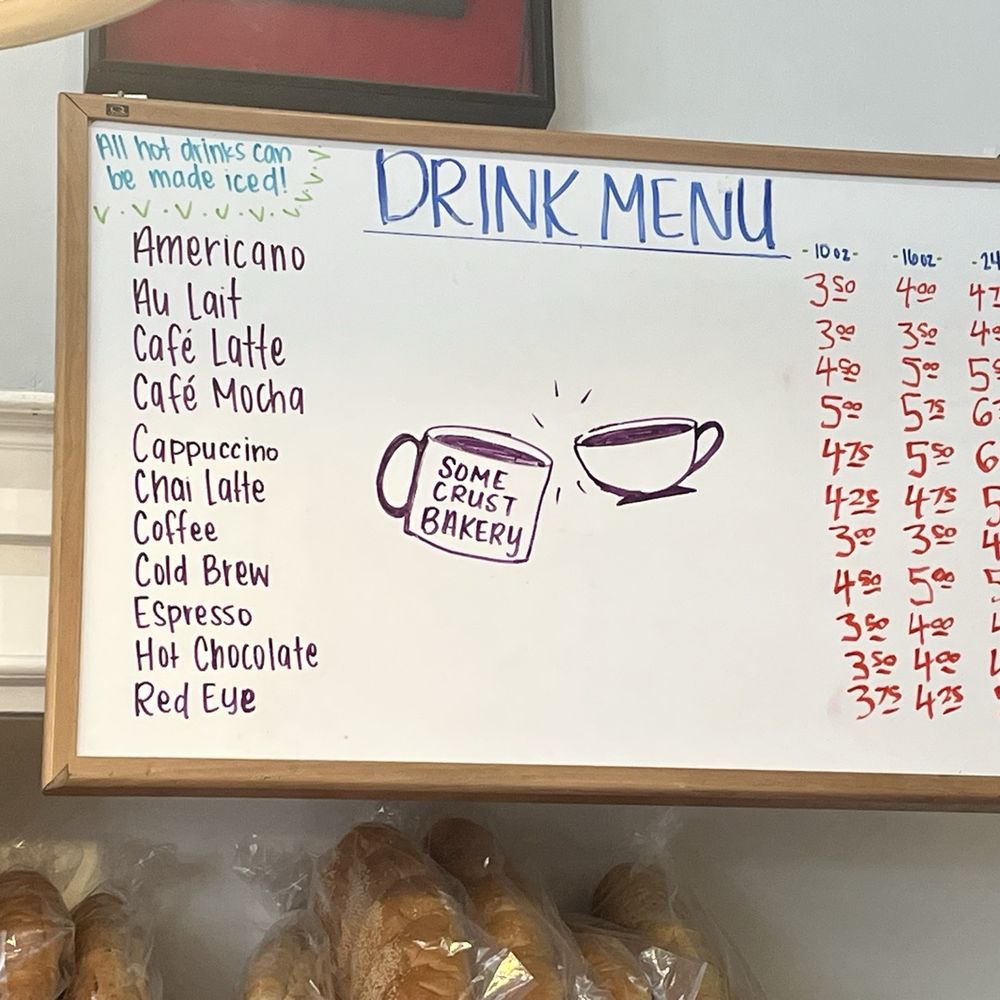 All hot drinks can
be made iced!
DRINK MENU
-10oz- -16oz-
Americano 3.50 4.00
Au Lait 3.00 3.50
Café Latte 4.50 5.00
Café Mocha 5.00 5.75
Cappuccino 4.75 5.50
Chai Latte 4.25 4.75
Coffee 3.00 3.50
Cold Brew 4.50 5.00
Espresso 3.50 4.00
Hot Chocolate 3.50 4.00
Red Eye 3.75 4.25
SOME
CRUST
BAKERY